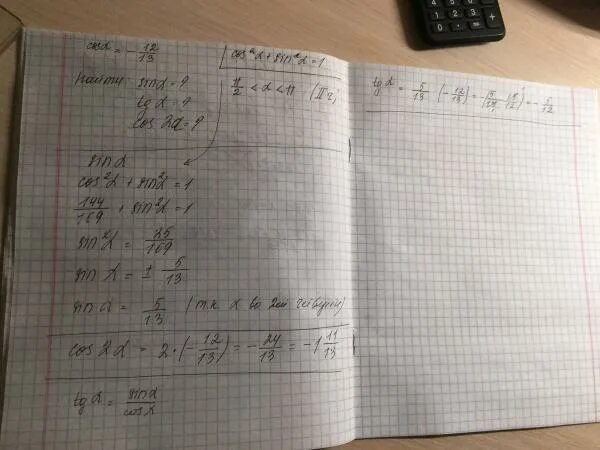 cosα = -12/13
cos²α + sin²α = 1
Найти: sinα = ?
π/2 < α < π (II ч)
tgα = ?
cos 2α = ?
sinα
cos²α + sin²α = 1
144/169 + sin²α = 1
sin²α = 25/169
sin α = ± 5/13
sin α = 5/13 (т.к α во 2ой четверти)
cos 2α = 2·(-12/13) = -24/13 = -1 11/13
tgα = sinα/cosα
tgα = 5/13 : (-12/13) = -(5/13 · 13/12) = -5/12